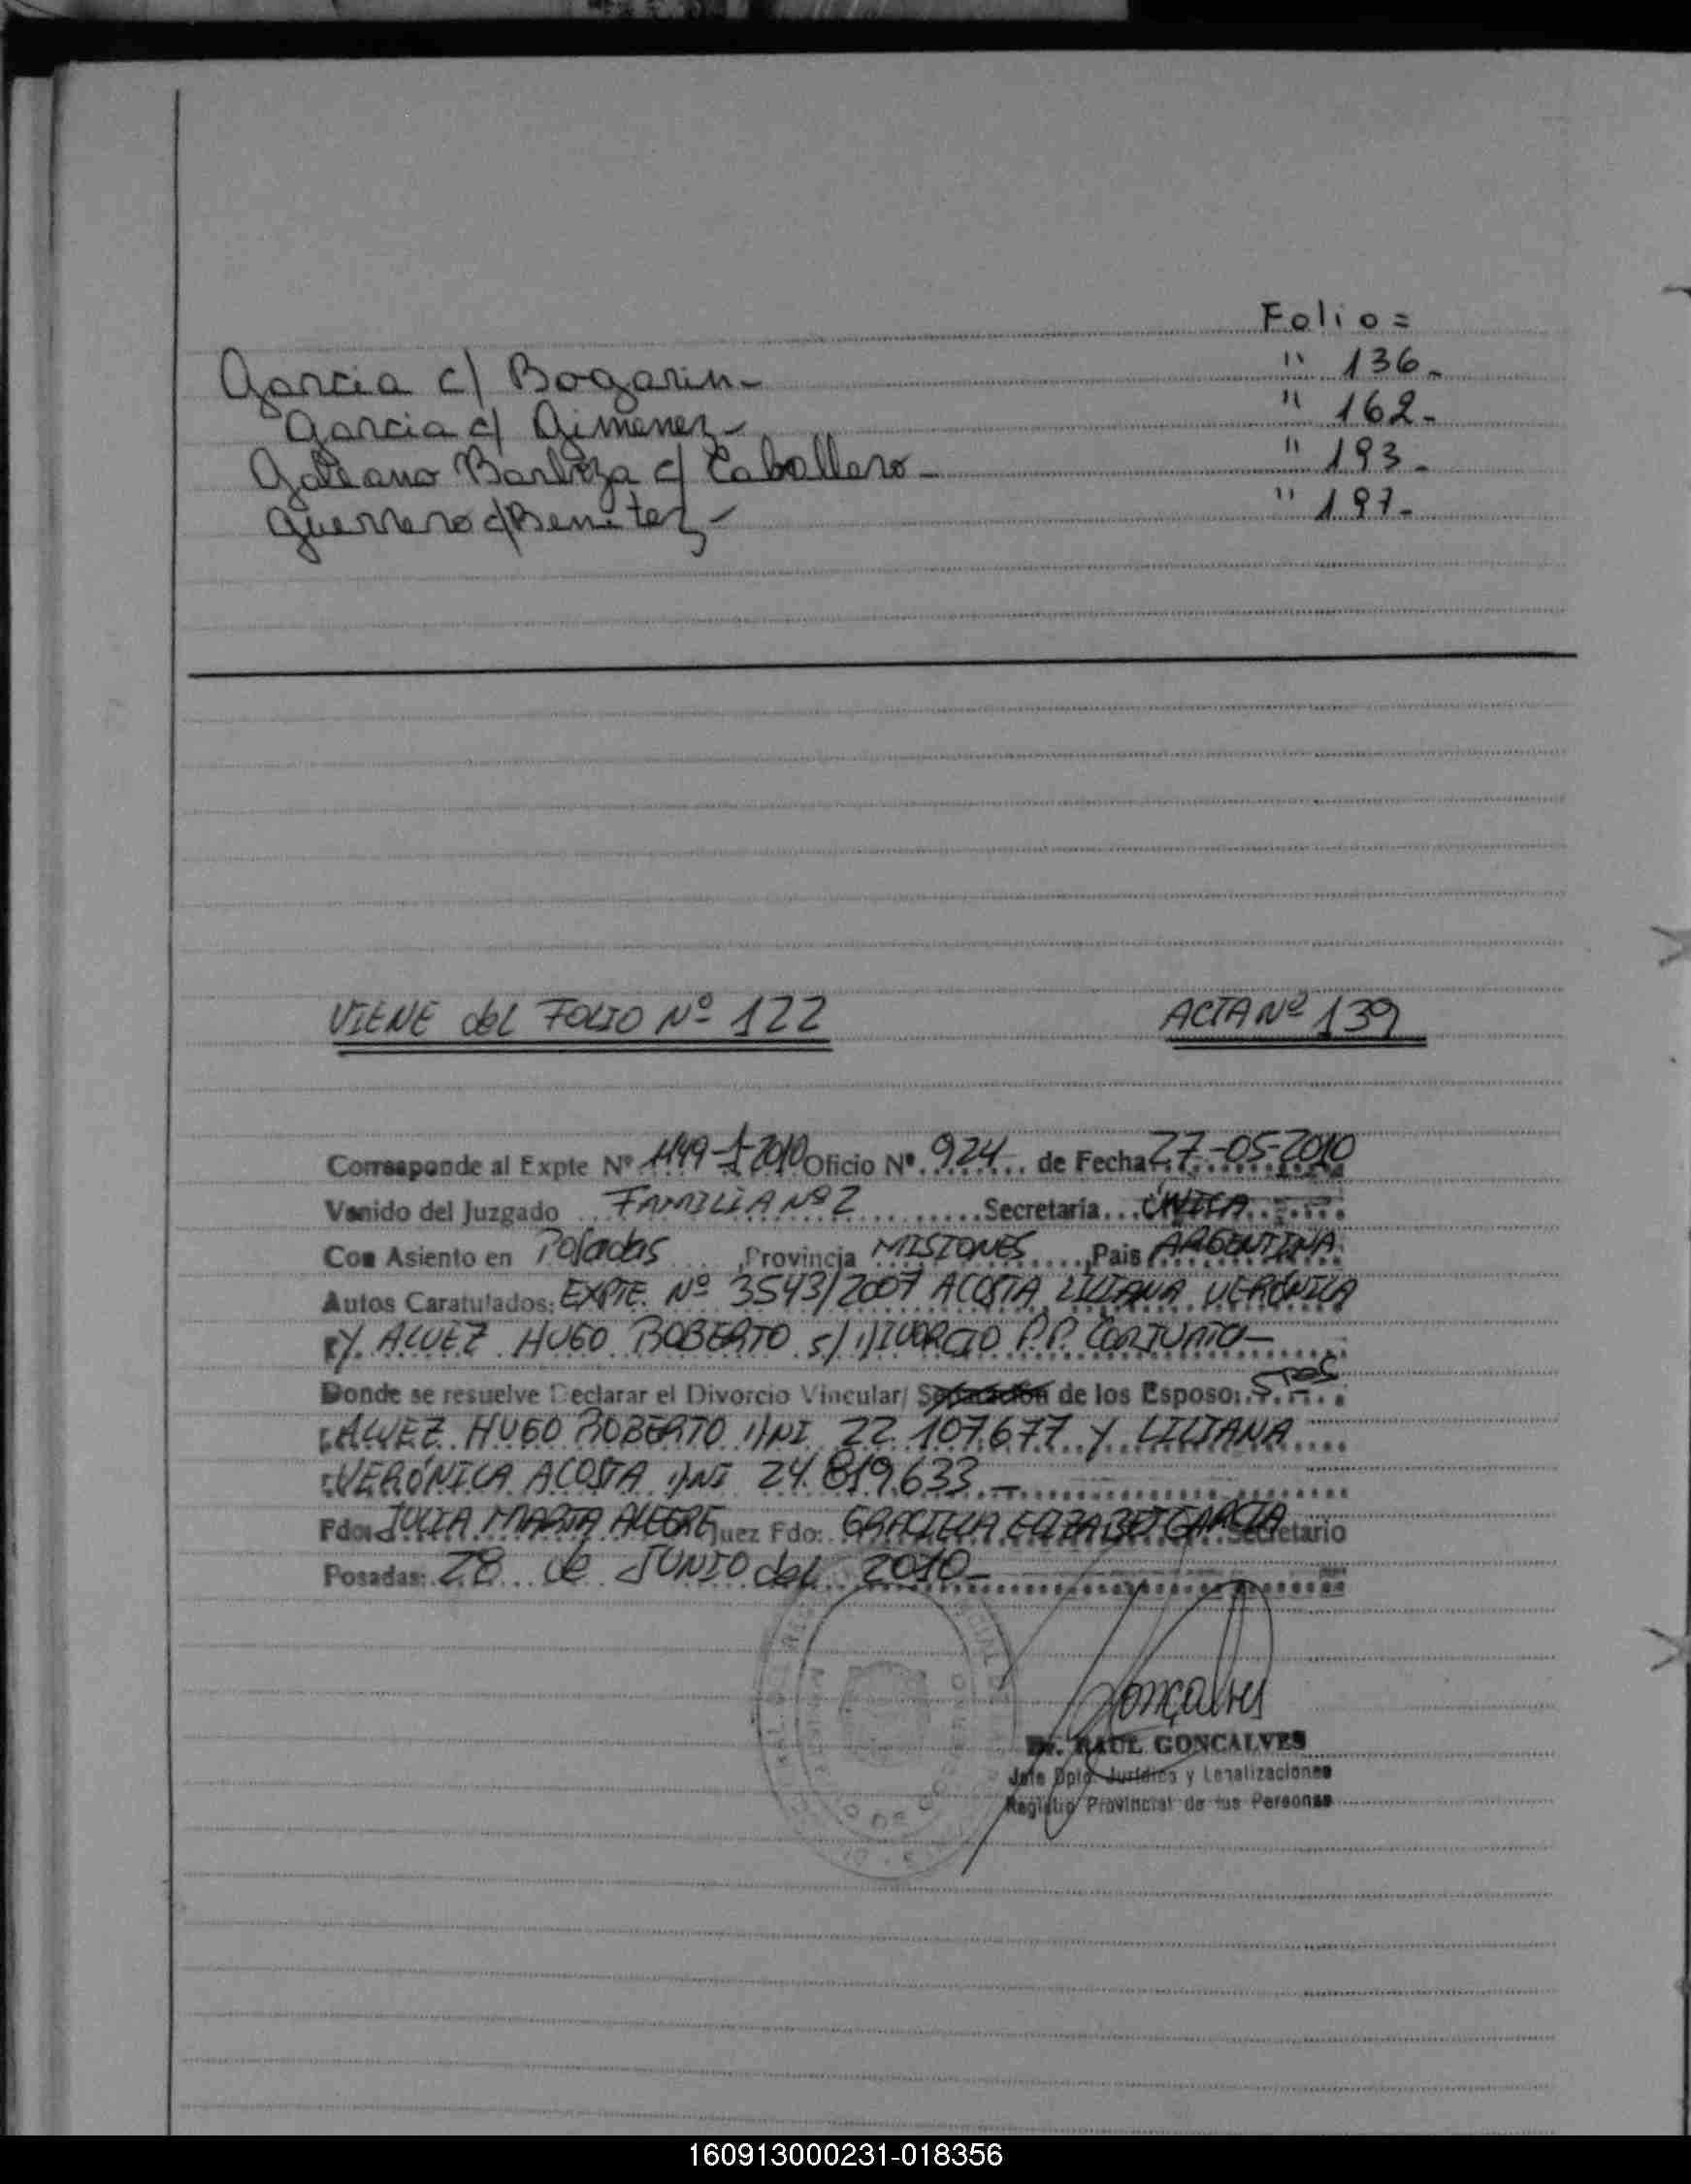 Folio =
Garcia c/ Bogarin - " 136 -
Garcia c/ Gimenez - " 162 -
Galeano Barboza c/ Caballero - " 193 -
Guerrero c/ Benitez - " 197 -
VIENE del FOLIO Nº 122 ACTA Nº 139
Corresponde al Expte Nº 1149-1-2010 Oficio Nº 924 de Fecha 27-05-2010
Venido del Juzgado FAMILIA Nº 2 Secretaria ÚNICA
Con Asiento en Posadas ,Provincia MISIONES ,Pais ARGENTINA
Autos Caratulados: EXPTE. Nº 3543/2007 ACOSTA LILIANA VERÓNICA
Y ALVEZ HUGO ROBERTO s/ DIVORCIO P.P. CONJUNTA
Donde se resuelve Declarar el Divorcio Vincular/ Separación de los Esposos
ALVEZ HUGO ROBERTO DNI 22.107.677 Y LILIANA
VERÓNICA ACOSTA DNI 24.819.633.-
Fdo: JULIA MARTA ALEGRE Juez Fdo: GRACIELA ELIZABET GARCIA Secretario
Posadas: 28 de JUNIO del 2010-
Gonçalves
Dr. RAUL GONCALVES
Jefe Dpto. Jurídico y Legalizaciones
Registro Provincial de las Personas
160913000231-018356